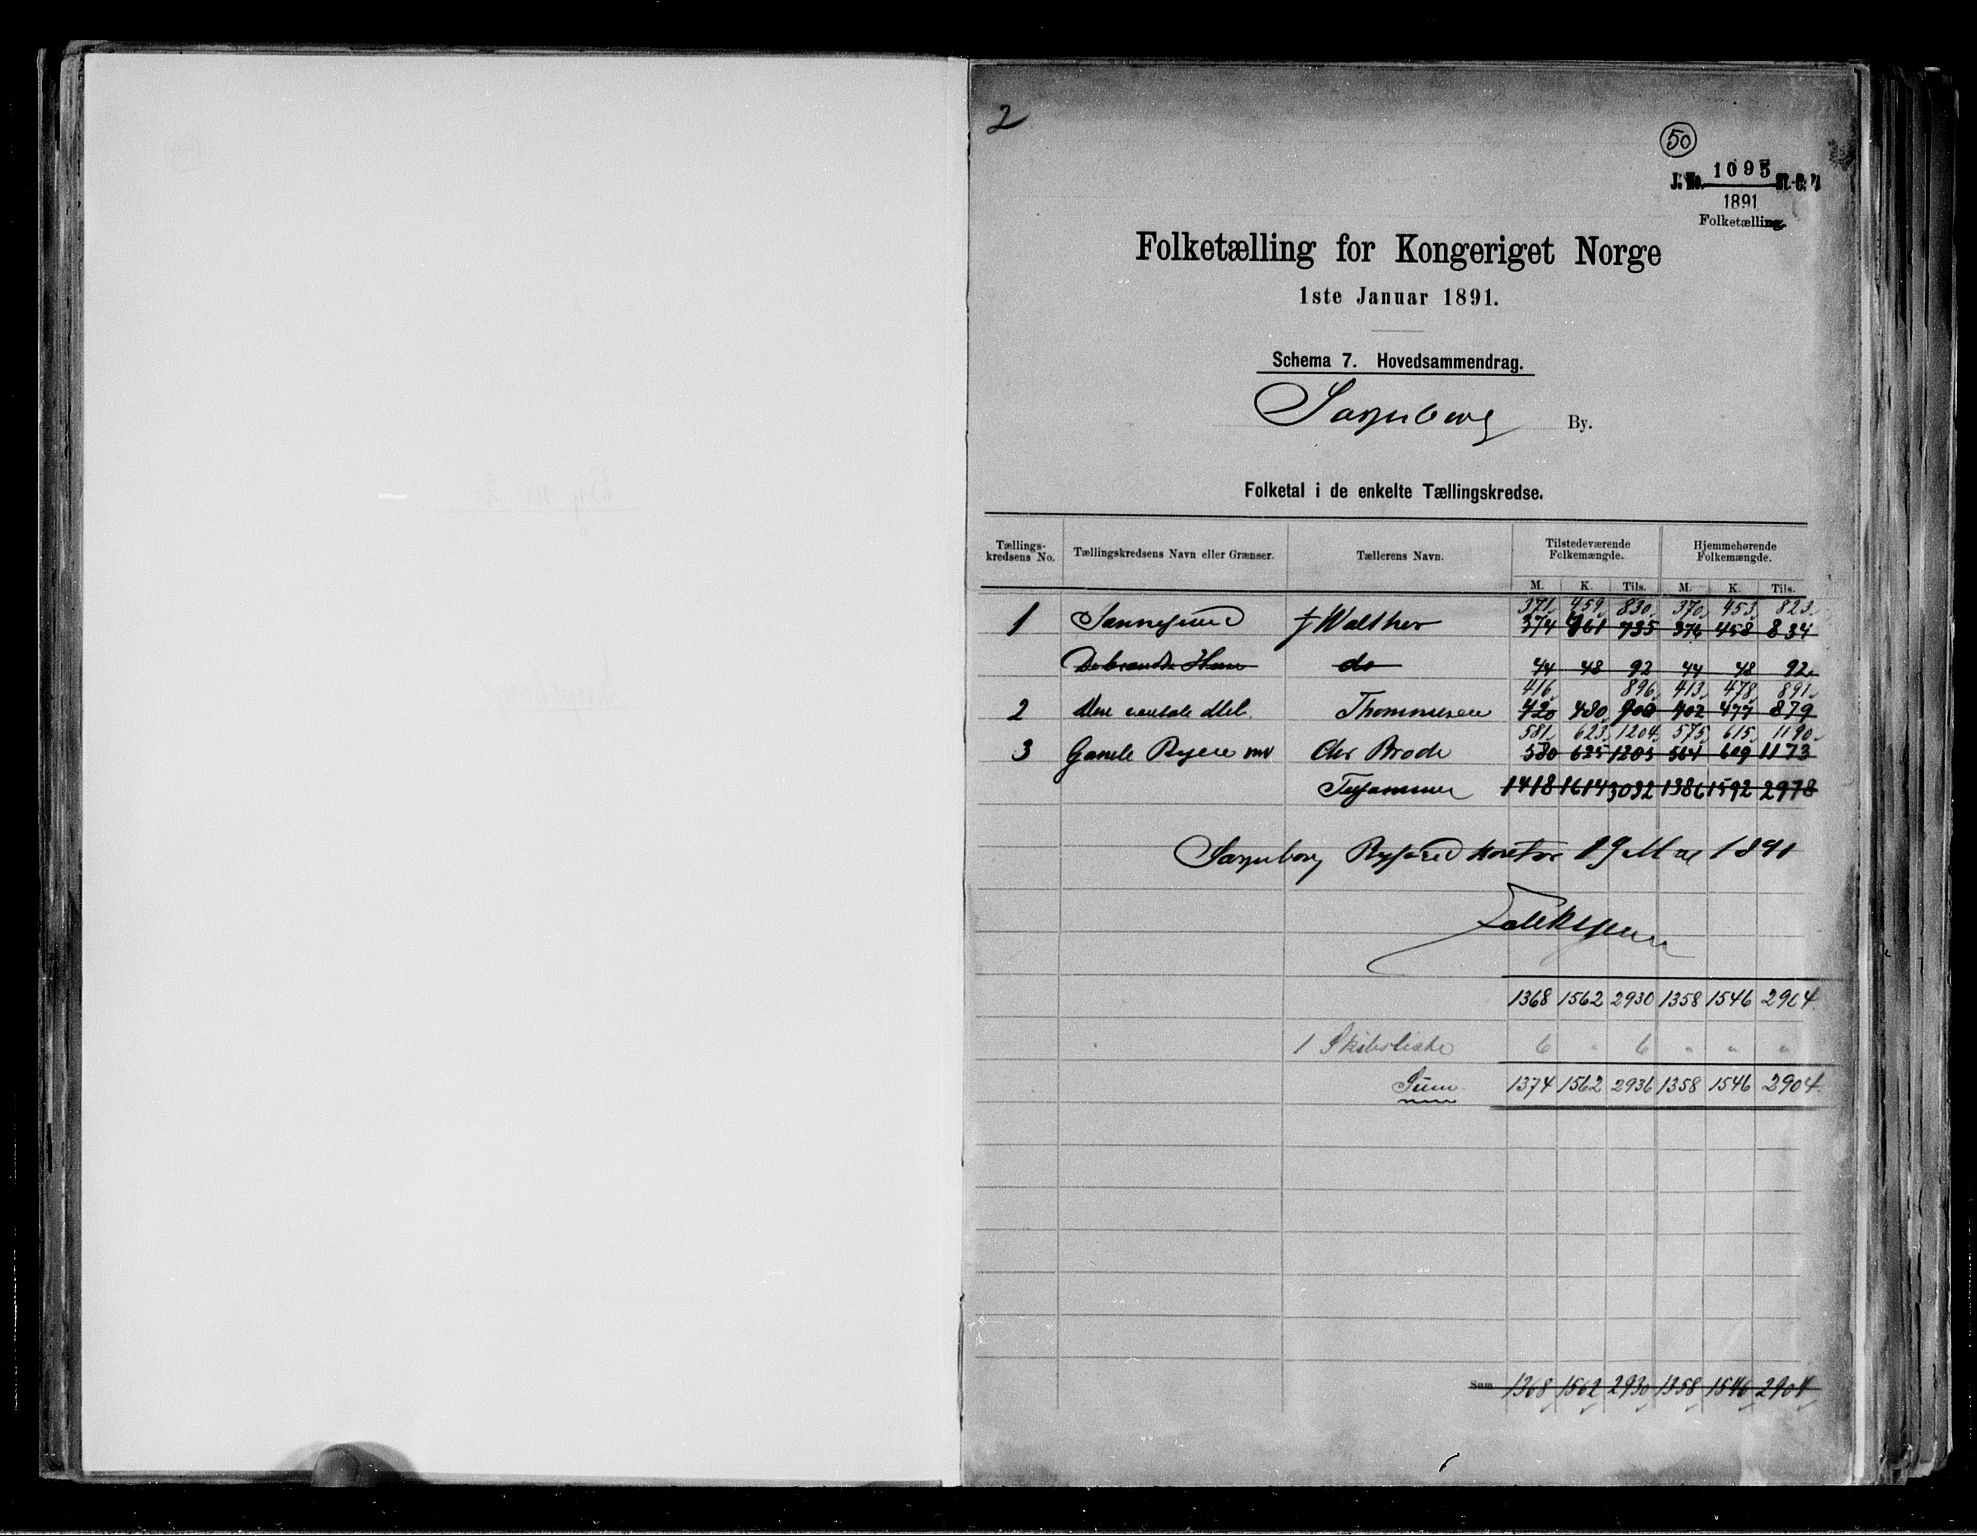 2
50
J. No. 1095 St. C. B.
1891
Folketælling
Folketælling for Kongeriget Norge
1ste Januar 1891.
Schema 7. Hovedsammendrag.
Sarpsborg By.
Folketal i de enkelte Tællingskredse.
Tællings-kredsens No. Tællingskredsens Navn eller Grænser. Tællerens Navn. Tilstedeværende Folkemængde. Hjemmehørende Folkemængde.
M. K. Tils. M. K. Tils.
371 459 830 370 453 823
1 Sannesund J Walther 374 461 735 376 458 834
do 44 48 92 44 48 92
416 896 413 478 891
2 Den vestale Del Thommesen 420 480 900 402 477 879
581 623 1204 575 615 1190
3 Gamle Byen mv Chr Brode 580 625 1205 564 609 1173
Tilsammen 1418 1614 3032 1386 1592 2978
Sarpsborg Byfoged kontor 19 Mai 1891
1368 1562 2930 1358 1546 2904
1 Skibsliste 6 " 6 " " "
Sum 1374 1562 2936 1358 1546 2904
Sum 1368 1562 2930 1358 1546 2904